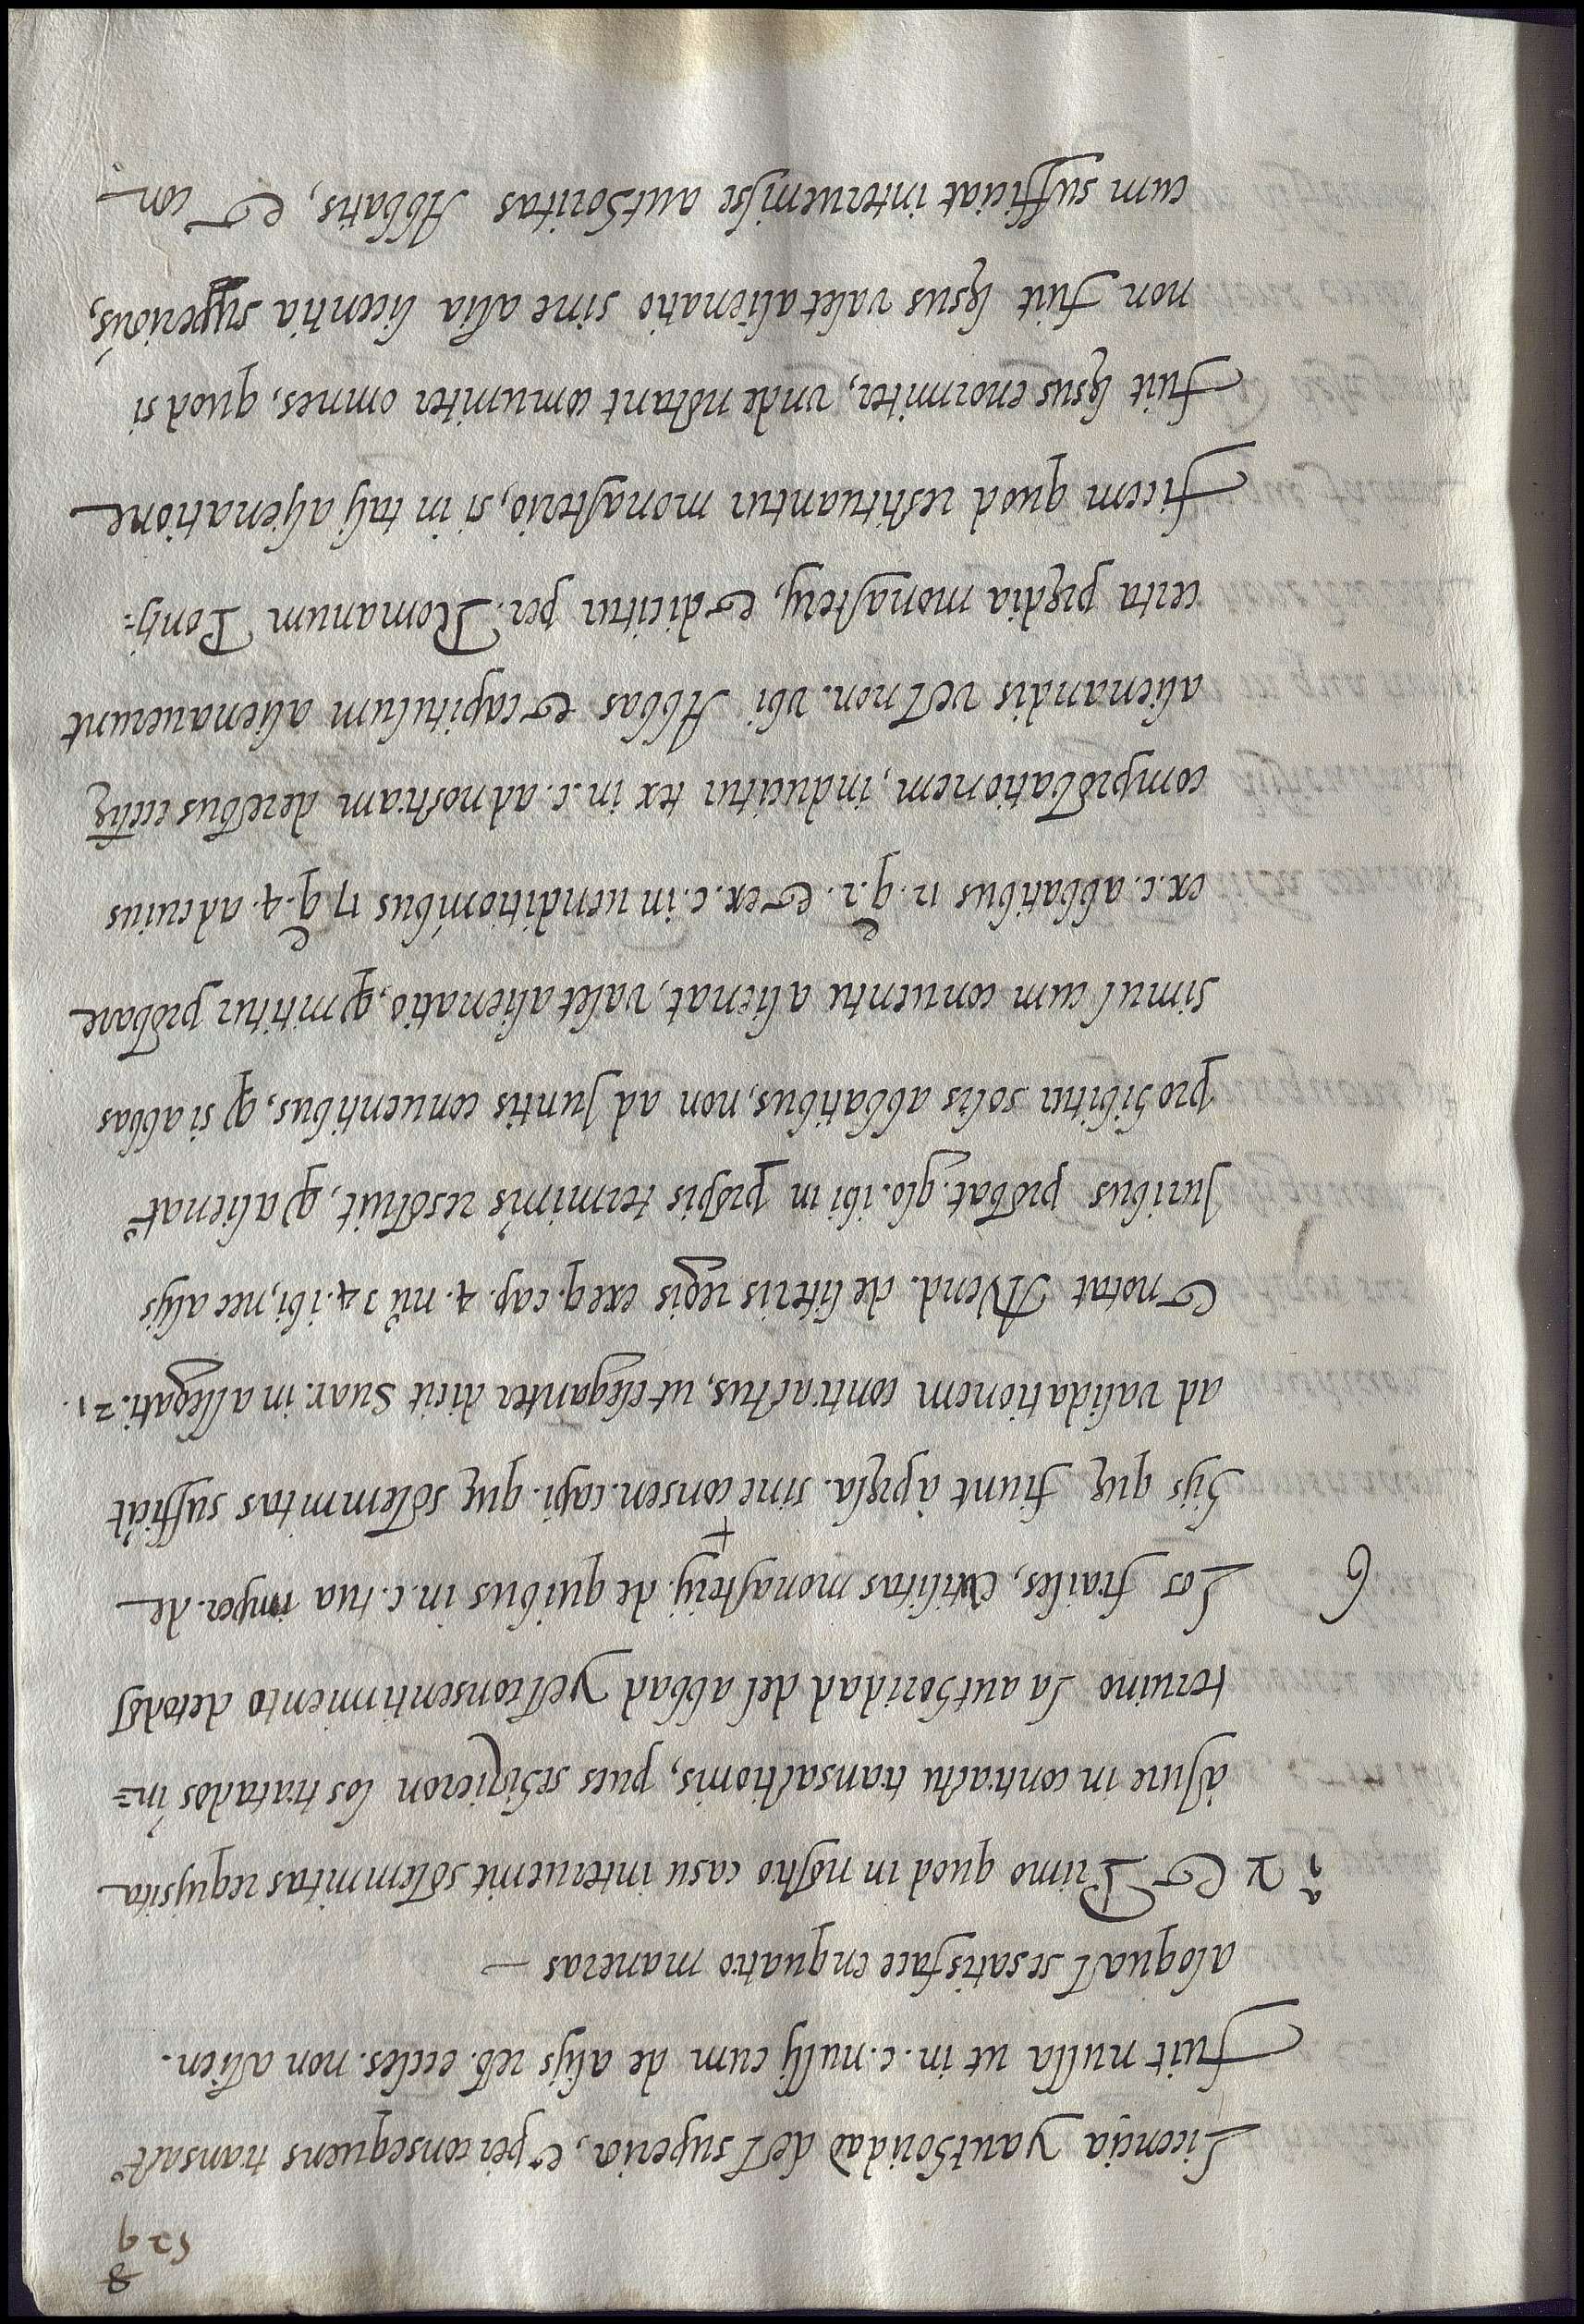 8
529
Licencia y authoridad del superior, & per consequens transact°
fuit nulla ut in .c. nulli cum de alijs reb. eccles. non alien.
alo qual se satisface en quatro maneras —
& Primo quod in nostro casu interuenit solemnitas requisita
a jure in contractu transactionis, pues se hizieron los tratados in=
teruino la authoridad del abbad y el consentimiento de todos
6 Los frailes, & utilitas monasterij. de quibus in .c. tua nuper. de
hijs quę fiunt à pręla. sine consen. capi. quę solemnitas sufficit
ad validationem contractus, ut eleganter dicit Suar. in allegati. 21.
& notat Avend. de literis regis exeq. cap. 4. nu 24. ibi, nec alijs
Juribus probat. glo. ibi in proprijs terminis resoluit, q alienat°
prohibitur solis abbatibus, non adjuntis conuentibus, q si abbas
simul cum conuentu alienat, valet alienatio, q nititur probare
ex .c. abbatibus 12. q. 2. & ex .c. in uenditionibus 17 q. 4. ad cuius
comprobationem, inducitur tex in .c. ad nostram de rebus ecclię
alienandis vel non. vbi Abbas & capitulum alienauerunt
certa prędia monasterij, & dicitur per Romanum Ponti=
ficem quod restituantur monasterio, si in tali alienatione
fuit lęsus enormiter, vnde notant comuniter omnes, quod si
non fuit lęsus valet alienatio sine alia licentia superioris,
cum sufficiat interuenisse authoritas Abbatis, & con